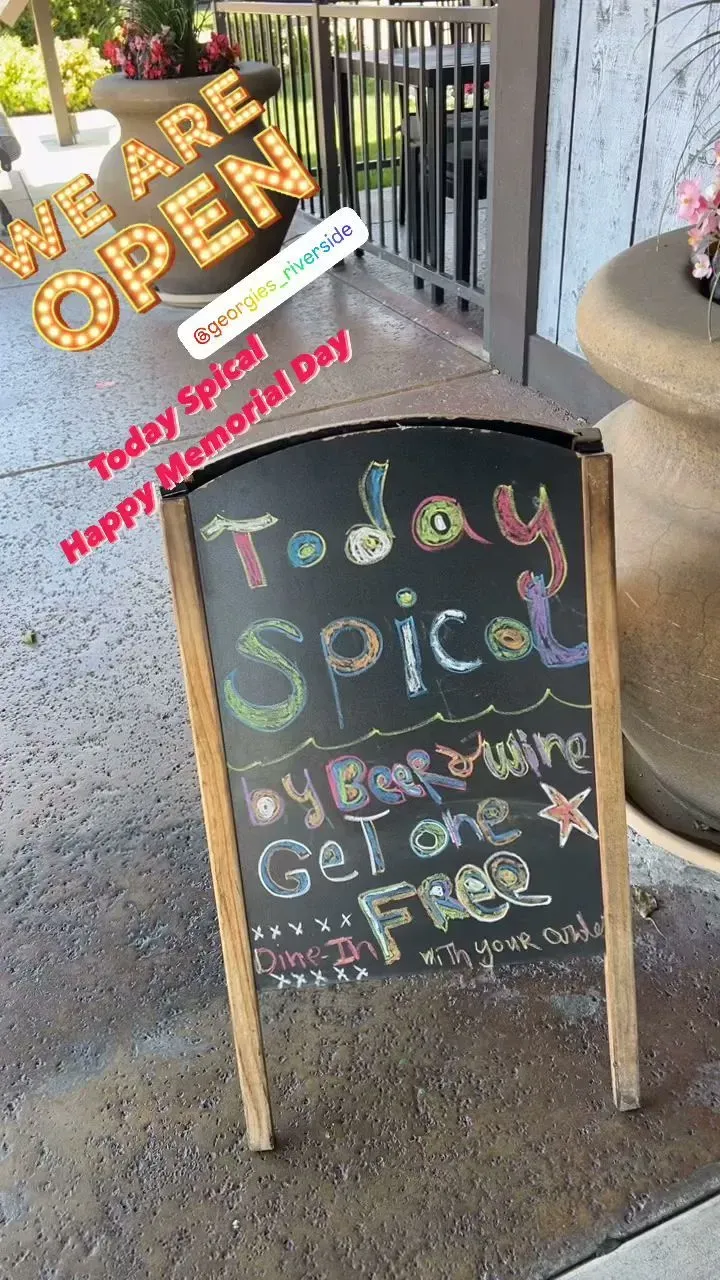 WE ARE
OPEN
@georgies_riverside
Today Spical
Happy Memorial Day
Today
Spical
by Beer & Wine
Get one
FREE
xxxxx
Dine-In with your order
xxxxx